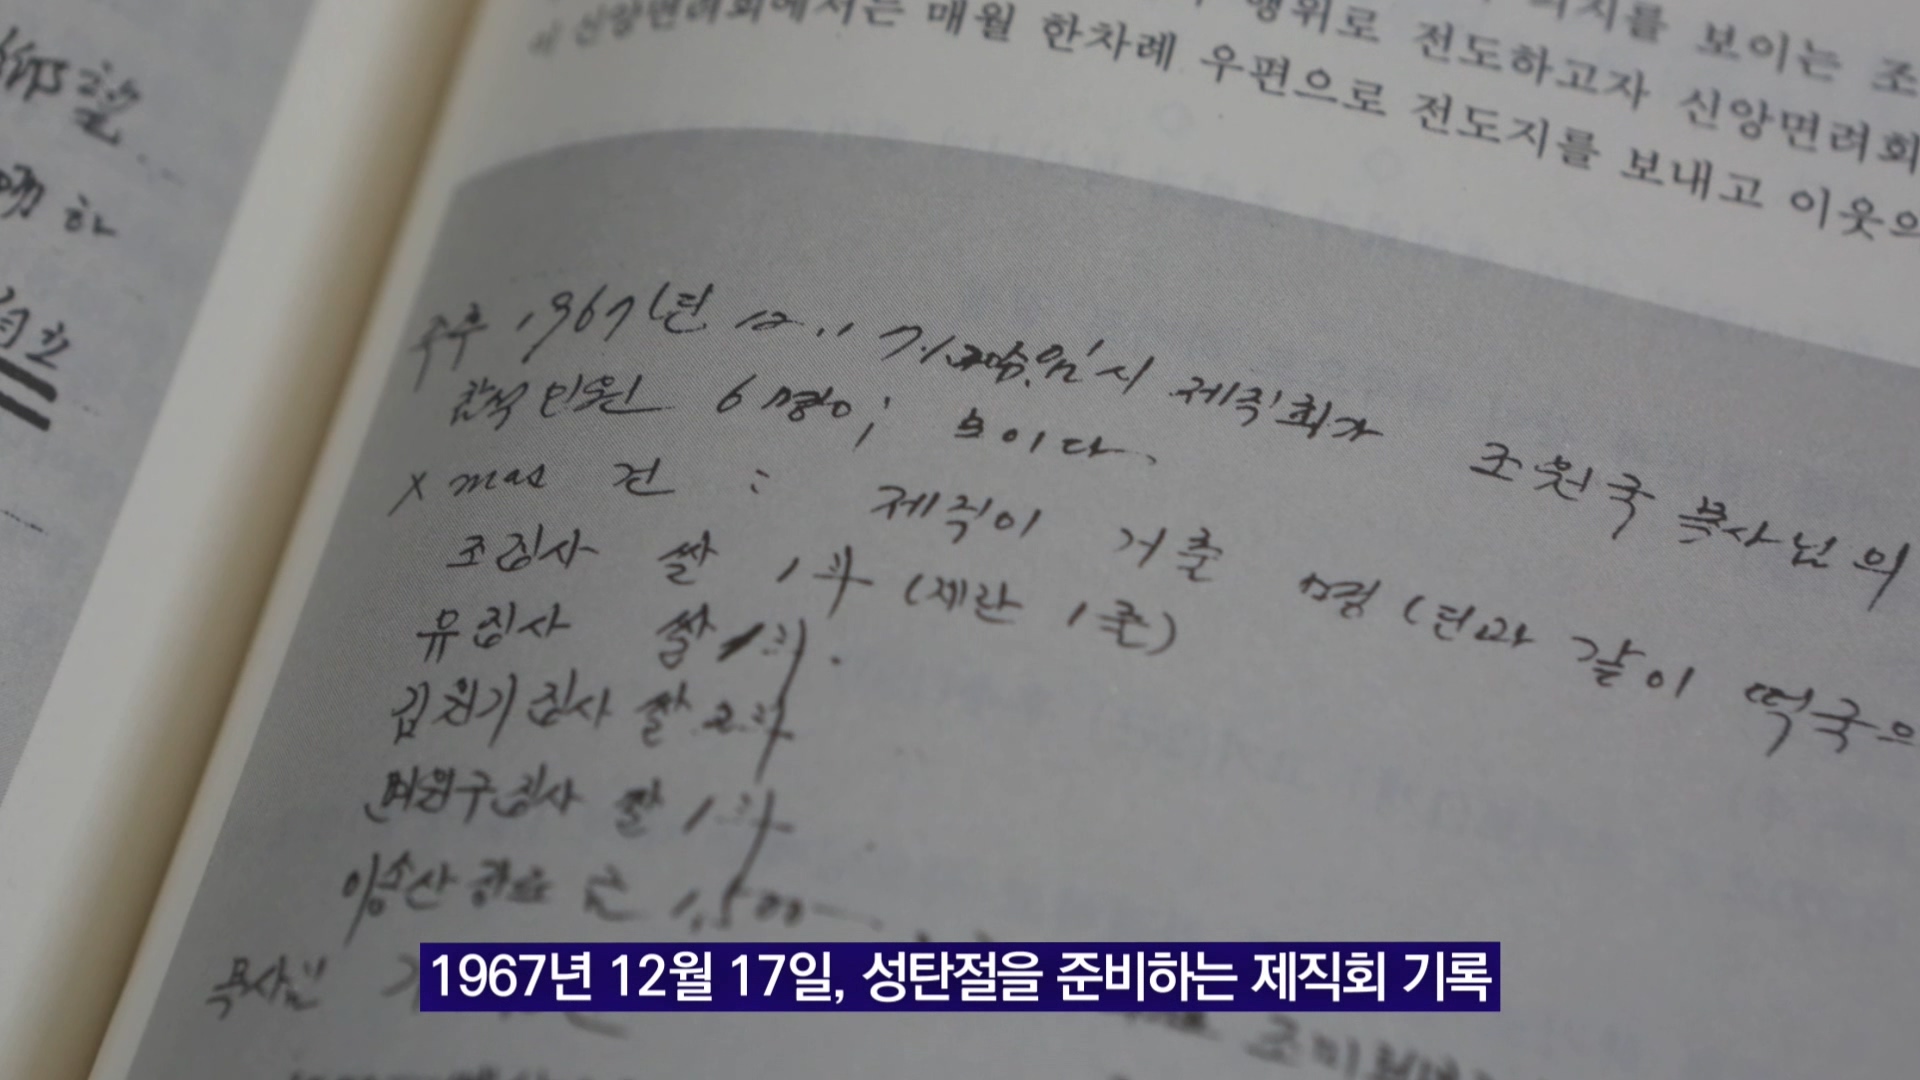 의지를 보이는 조
행위로 전도하고자 신앙면려회
이 신앙면려회에서는 매월 한차례 우편으로 전도지를 보내고 이웃의
하
주후 1967년 12.17. 임시 제직회가 조원국 목사님의
참석인원 6명이 보이다.
Xmas 건 : 제직이 거출 명(년과 같이 떡국으
조집사 쌀 1斗 (계란 1줄)
유집사 쌀 1斗.
김원기집사 쌀 2斗
구집사 쌀 1斗
금 1,500
목사님
1967년 12월 17일, 성탄절을 준비하는 제직회 기록